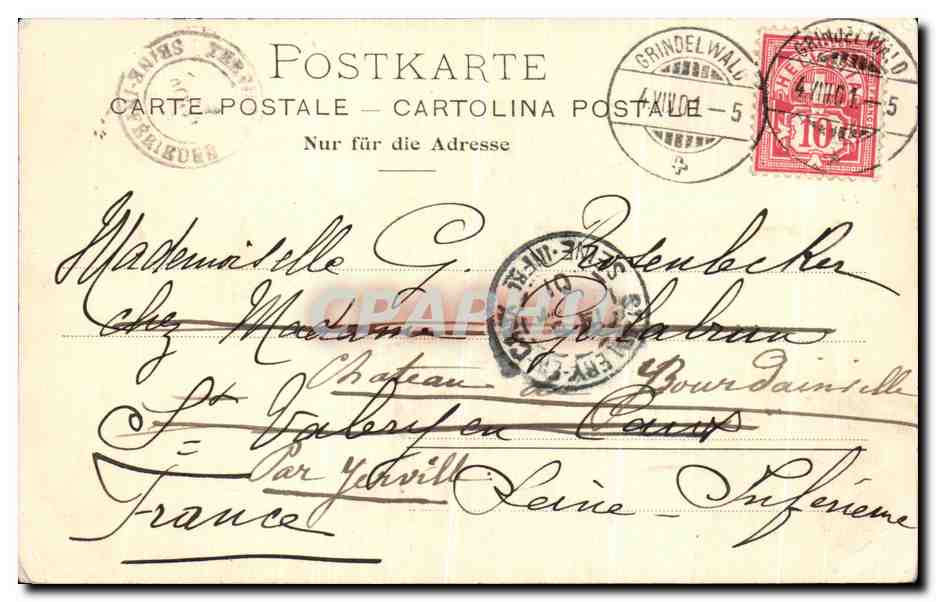 POSTKARTE
CARTE POSTALE — CARTOLINA POSTALE
Nur für die Adresse
GRINDELWALD
4.VIII.01–5
GRINDELWALD
4.VIII.01–5
HELVETIA
10
SEINE-INFÉRIEURE
Mademoiselle G. Rosenbecker
chez Madame
Chateau de Bourdainville
St Valery en Caux
Par Yerville
Seine-Inférieure
France
ST VALERY-EN-CAUX
SEINE-INFRE
01
CPARHAMA